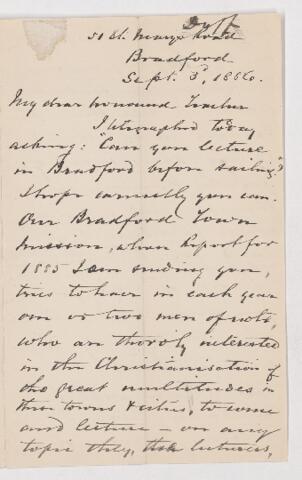 Dyff
51 St. Mary's Road
Bradford
Sept. 3d, 1886.
My dear honoured Teacher
I telegraphed today
asking: "Can you lecture
in Bradford before sailing?"
I hope earnestly you can.
Our Bradford Town
Mission, whose Report for
1885 I am sending you,
tries to have in each year
one or two men of note,
who are thoroly interested
in the Christianisation of
the great multitudes in
these towns & cities, to come
and lecture - on any
topic they, the lecturers,